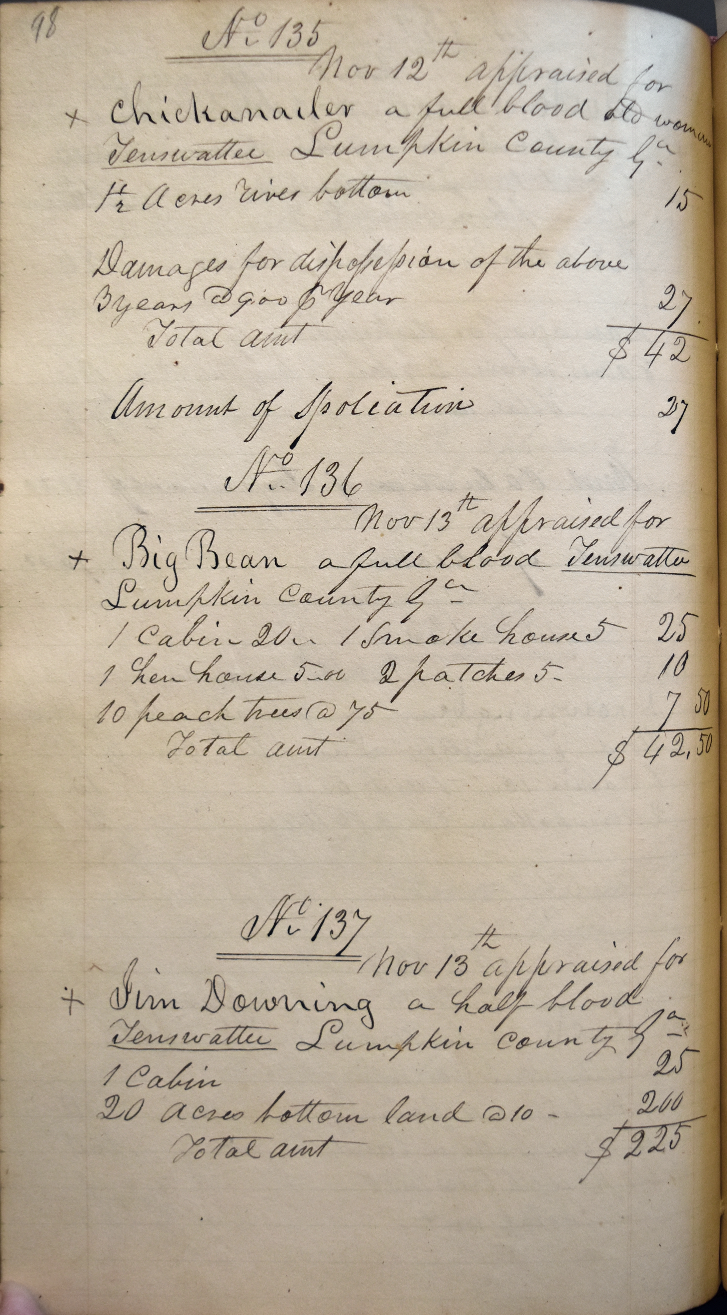 98
No 135
Nov 12th appraised for
+ Chickanailer a full blood old woman
Tenswattee Lumpkin County Ga
1½ Acres river bottom 15
Damages for dispossession of the above
3 years @ 9.00 ⅌ year 27
Total amt $ 42
Amount of Spoliation 27
No 136
Nov 13th appraised for
+ Big Bean a full blood Tenswattee
Lumpkin County Ga
1 Cabin 20.. 1 Smoke house 5 25
1 hen house 5.00 2 patches 5- 10
10 peach trees @ 75 7 50
Total amt $ 42,50
No 137
Nov 13th appraised for
+ Jim Downing a half blood
Tenswattee Lumpkin county Ga
1 Cabin 25
20 acres bottom land @ 10 - 200
Total amt $ 225